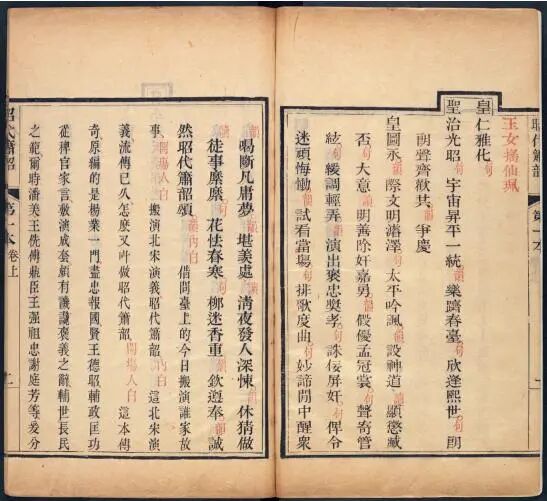 玉女搖仙珮
皇仁雅化句
聖治光昭句宇宙昇平一統韻樂躋春臺句欣逢熙世句朗
朗聲齊歡共韻爭慶
皇圖永韻際文明濤澤句太平吟諷韻設神道韻顯懲藏
否句大意句明善除奸嘉勇韻假優孟冠裳句聲奇管
絃句緩調輕弄韻演出褒忠獎孝句誅佞屏奸句俾令
迷頑悔慟韻試看當場句排歌度曲句妙諦閒中醒衆
韻喝斷凡庸夢韻堪羨處句清夜發人深悚韻休猜做
徒事縻縻句花怯春寒句柳迷香重韻欽遵奉韻誠
然昭代簫韶頌韻內白借問臺上的今日搬演誰家故
事開場人白搬演北宋演義昭代簫韶內白這北宋演
義流傳已久怎麼又叫做昭代簫韶開場人白這本傳
奇原編的是楊業一門盡忠報國賢王德昭輔政匡功
從稗官家言敷演成套頗有譏讒褒義之辭輔世長民
之範爾時潘美王侁傅鼎臣王強祖忠謝庭芳等爰分
昭代簫韶 第一本卷上